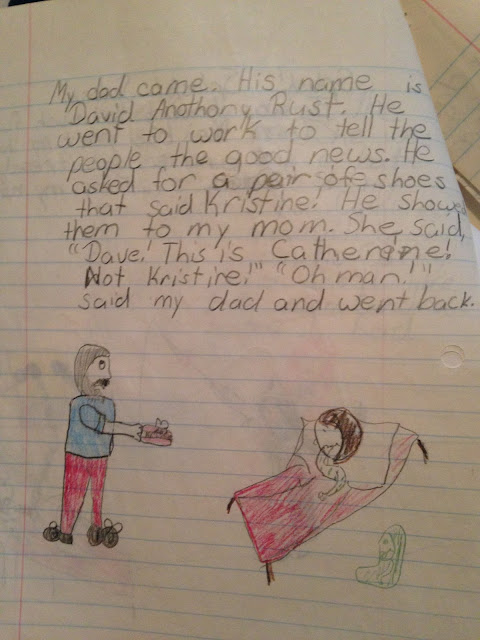 My dad came. His name is
David Anothony Rust. He
went to work to tell the
people the good news. He
asked for a pair ofe shoes
that said Kristine! He showed
them to my mom. She said,
"Dave! This is Catherine!
Not Kristine!" "Oh man!"
said my dad and went back.